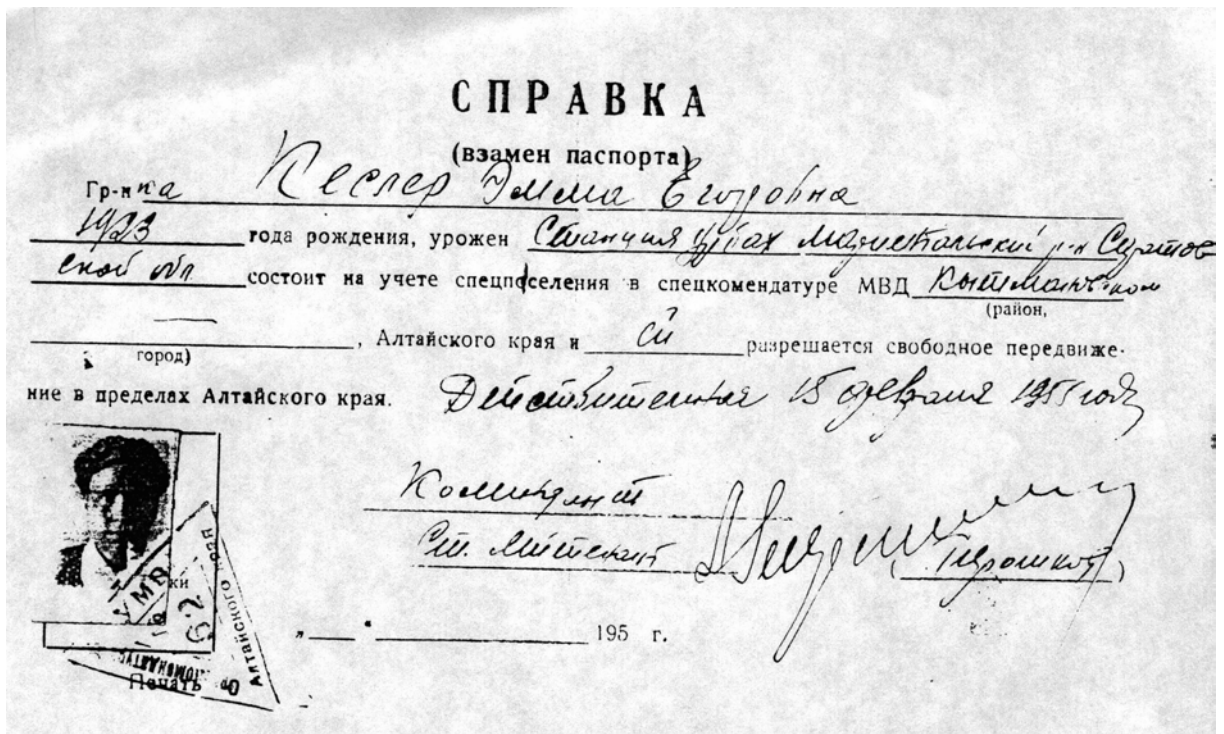 СПРАВКА
(взамен паспорта)
Гр-нка Кеслер Эмма Егоровна
1923 года рождения, урожен Станция Урбах р-н Саратов
ской обл состоит на учете спецпоселения в спецкомендатуре МВД Кытмановском
(район,
город) , Алтайского края и ей разрешается свободное передвиже-
ние в пределах Алтайского края. Действительна 15 февраля 1955 года
Комендант
Ст. Лейтенант
" " 195 г.
УМВД
62
Алтайского края
Печать